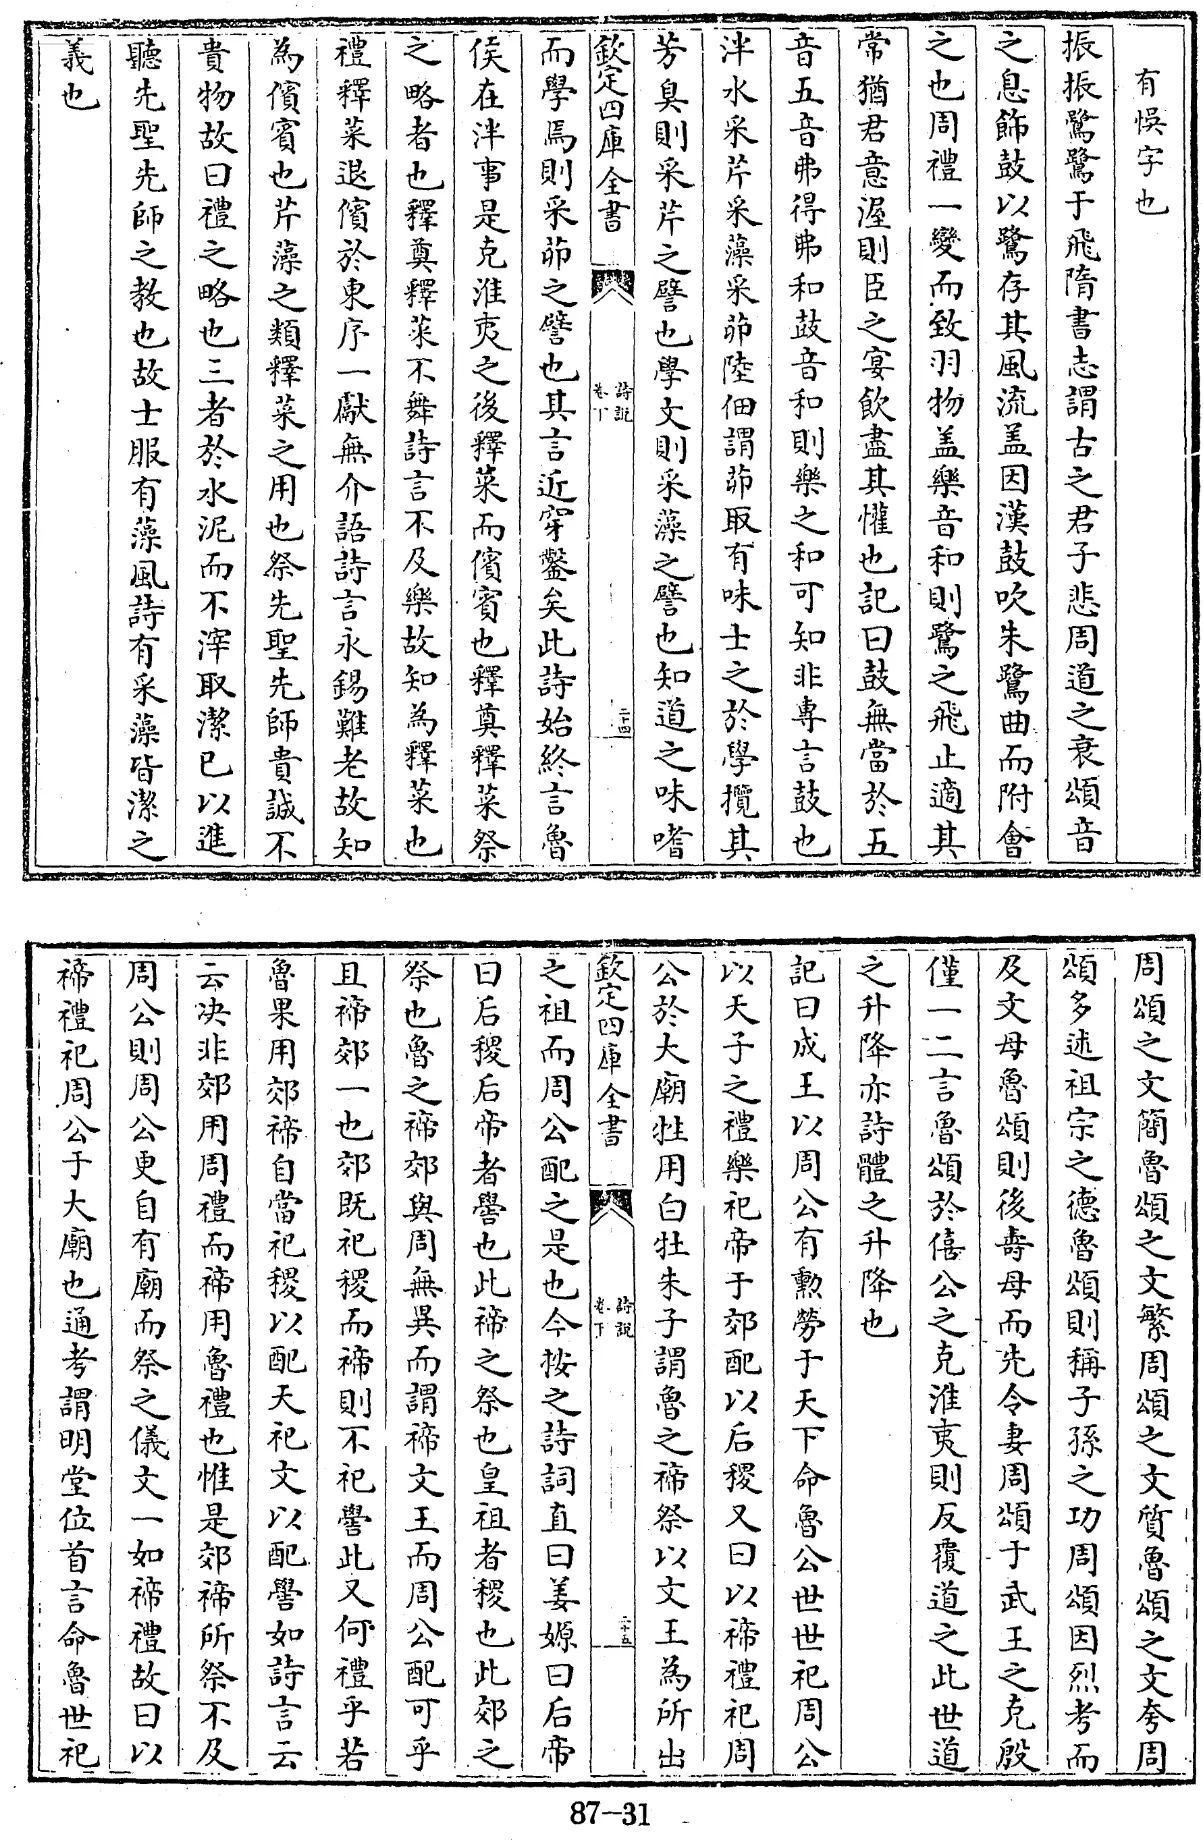 有悞字也
振振鷺鷺于飛隋書志謂古之君子悲周道之衰頌音
之息飾鼓以鷺存其風流盖因漢鼓吹朱鷺曲而附會
之也周禮一變而致羽物盖樂音和則鷺之飛止適其
常猶君意渥則臣之宴飲盡其懽也記曰鼓無當於五
音五音弗得弗和鼓音和則樂之和可知非專言鼓也
泮水采芹采藻采茆陸佃謂茆取有味士之於學攬其
芳臭則采芹之譬也學文則采藻之譬也知道之味嗜
欽定四庫全書 詩説 卷下 二十四
而學焉則采茆之譬也其言近穿鑿矣此詩始終言魯
侯在泮事是克淮夷之後釋菜而儐賓也釋奠釋菜祭
之略者也釋奠釋菜不舞詩言不及樂故知為釋菜也
禮釋菜退儐於東序一獻無介語詩言永錫難老故知
為儐賓也芹藻之類釋菜之用也祭先聖先師貴誠不
貴物故曰禮之略也三者於水泥而不滓取潔已以進
聽先聖先師之教也故士服有藻風詩有采藻皆潔之
義也
周頌之文簡魯頌之文繁周頌之文質魯頌之文夸周
頌多述祖宗之德魯頌則稱子孫之功周頌因烈考而
及文母魯頌則後壽母而先令妻周頌于武王之克殷
僅一二言魯頌於僖公之克淮夷則反覆道之此世道
之升降亦詩體之升降也
記曰成王以周公有勳勞于天下命魯公世世祀周公
以天子之禮樂祀帝于郊配以后稷又曰以禘禮祀周
公於大廟牲用白牡朱子謂魯之禘祭以文王為所出
欽定四庫全書 詩説 卷下 二十五
之祖而周公配之是也今按之詩詞直曰姜嫄曰后帝
曰后稷后帝者嚳也此禘之祭也皇祖者稷也此郊之
祭也魯之禘郊與周無異而謂禘文王而周公配可乎
且禘郊一也郊既祀稷而禘則不祀嚳此又何禮乎若
魯果用郊禘自當祀稷以配天祀文以配嚳如詩言云
云决非郊用周禮而禘用魯禮也惟是郊禘所祭不及
周公則周公更自有廟而祭之儀文一如禘禮故曰以
禘禮祀周公于大廟也通考謂明堂位首言命魯世祀
87-31